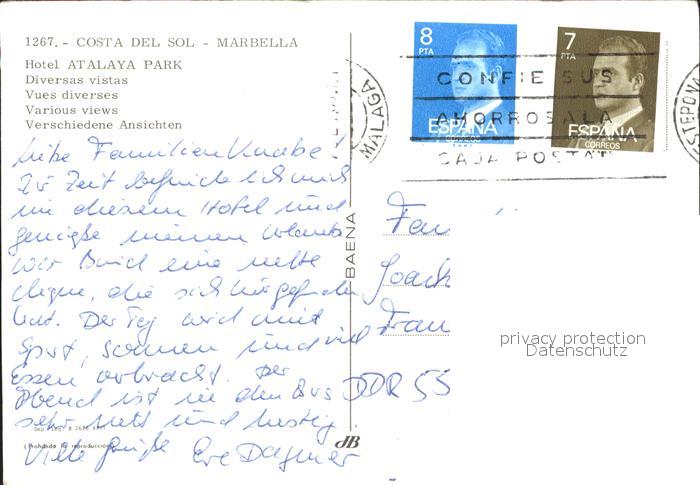 1267. - COSTA DEL SOL - MARBELLA
Hotel ATALAYA PARK
Diversas vistas
Vues diverses
Various views
Verschiedene Ansichten
Liebe Familien Knabe!
Zur Zeit befinde ich mich
in diesem Hotel und
genieße meinen Urlaub
Wir sind eine nette
Clique, die sich hier gefunden
hat. Der Tag wird mit
Sport, sonnen und viel
Essen verbracht. Der
Abend ist in den
sehr nett und lustig.
Viele Grüße Eve Dagmar
(Prohibida la reproducción)
BAENA
8 PTA
ESPAÑA
CORREOS
7 PTA
ESPAÑA
CORREOS
MALAGA
CONFIE SUS
AHORROS A LA
CAJA POSTAL
ESTEPONA
Fam
Joach
Fran
DDR 55
privacy protection
Datenschutz